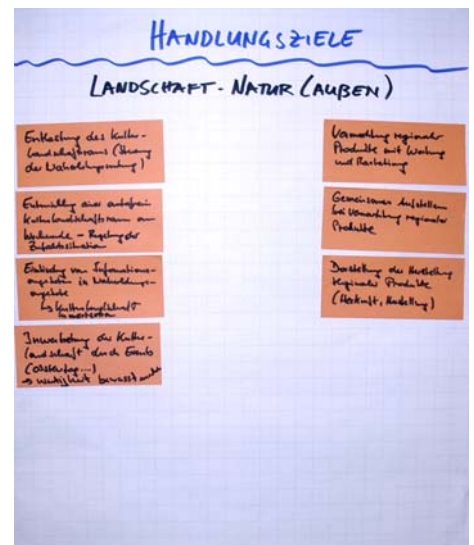 HANDLUNGSZIELE
LANDSCHAFT - NATUR (AUßEN)
Entlastung des Kultur-
landschaftsraums (Steuerung
der Naherholungsnutzung)
Entwicklung eines autofreien
Kulturlandschaftsraum am
Wochenende - Regelung der
Zufahrtssituation
Einbindung von Informations-
angeboten in Naherholungs-
angebote
↳ Kulturlandschaft
Inwertsetzung der Kultur-
landschaft durch Events
→ Wertigkeit bewusst
Vermarktung regionaler
Produkte mit Werbung
und Marketing
Gemeinsames Aufstellen
bei Vermarktung regionaler
Produkte
Darstellung der Herstellung
regionaler Produkte
(Herkunft, Herstellung)